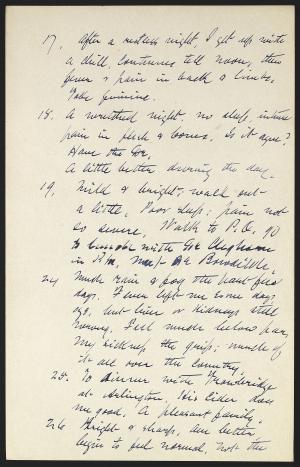 17. After a restless night, I get up with
a chill, continues till noon, then
fever & pain in back & limbs.
Take quinine.
18. A wretched night, no sleep, intense
pain in flesh & bones. Is it ague?
Have the Dr.
A little better during the day.
19. Mild & bright, walk out
a little, Poor sleep; pain not
so severe, Walk to P.O. go
to lunch with Dr
in P.M.
24 Much rain & fog the past five
days. Fever left me some days
ago, but liver or kidneys still
wrong. Feel much below par,
my sickness the grip; much of
it all over the country,
25. To dinner with Trowbridge
at Arlington, His cider does
me good. A pleasant family,
26 Bright & sharp, am better
begin to feel normal, not the